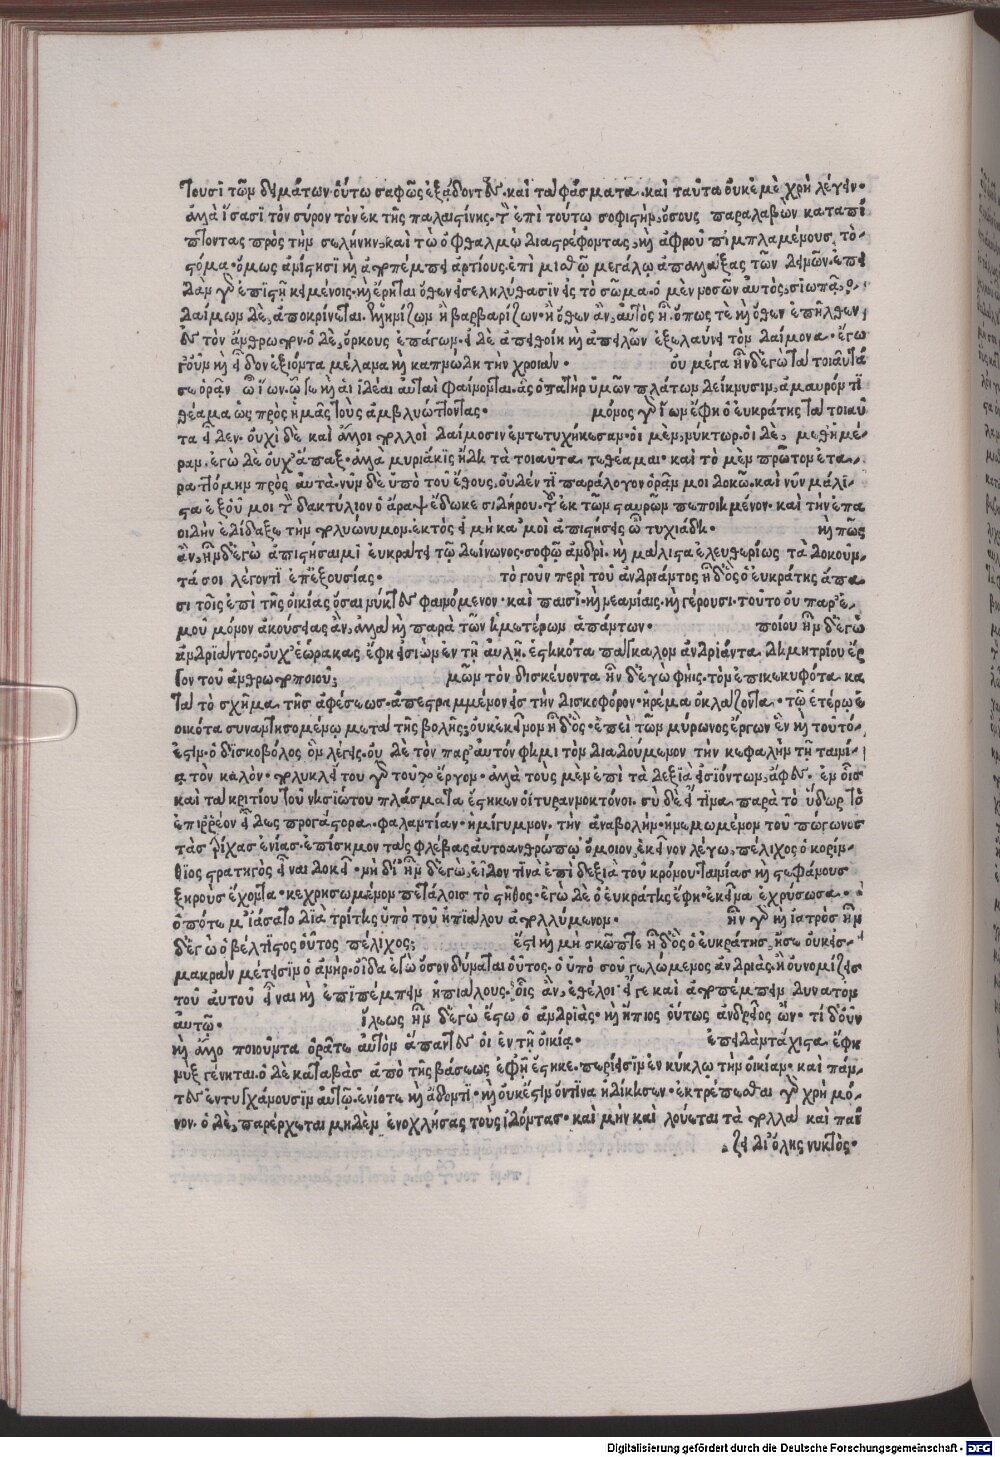 τουσι τῶν δειμάτων οὕτω σαφῶς ἐξᾴδοντες καὶ τὰ φάσματα. καὶ ταῦτα οὐκ ἐμὲ χρὴ λέγειν·
ἀλλὰ ἴσασι τὸν σύρον τὸν ἐκ τῆς παλαιστίνης. τὸν ἐπὶ τούτω σοφιστὴν, ὅσους παραλαβὼν καταπί
πτοντας πρὸς τὴν σελήνην, καὶ τὼ ὀφθαλμὼ διαστρέφοντας, καὶ ἀφροῦ πιμπλαμένους τὸ-
στόμα· ὅμως ἀνίστησι καὶ ἀποπέμπει ἀρτίους. ἐπὶ μισθῷ μεγάλῳ ἀπαλλάξας τῶν δεινῶν. ἐπει
δὰν γὰρ ἐπιστῇ κειμένοις. καὶ ἔρηται ὅθεν εἰσεληλύθασιν εἰς τὸ σῶμα. ὁ μὲν νοσῶν αὐτὸς, σιωπᾷ, ὁ
δαίμων δὲ, ἀποκρίνεται. ἑλληνίζων ἢ βαρβαρίζων. ἢ ὅθεν ἂν, αὐτὸς ᾖ. ὅπως τὲ καὶ ὅθεν ἐπῆλθεν
ἐς τὸν ἄνθρωπον. ὁ δὲ, ὅρκους ἐπάγων. εἰ δὲ ἀπειθοίη καὶ ἀπειλῶν ἐξελαύνει τὸν δαίμονα. ἐγὼ
γοῦν καὶ εἶδον ἐξιόντα μέλανα καὶ καπνώδη τὴν χροιάν. οὐ μέγα ἦν δ' ἐγὼ τὰ τοιαῦτά
σε ὁρᾶν ὦ ἴων. ᾧ γε καὶ αἱ ἰδέαι αὐταὶ φαίνονται. ἃς ὁ πατὴρ ὑμῶν πλάτων δείκνυσιν, ἀμαυρόν τι
θέαμα ὡς πρὸς ἡμᾶς τοὺς ἀμβλυώττοντας. μόνος γὰρ ἴων ἔφη ὁ εὐκράτης τὰ τοιαῦ
τα εἶδεν. οὐχὶ δὲ καὶ ἄλλοι πολλοὶ δαίμοσιν ἐντετυχήκασιν. οἱ μὲν, νύκτωρ. οἱ δὲ, μεθημέ-
ραν. ἐγὼ δὲ οὐχ' ἅπαξ. ἀλλὰ μυριάκις ἤδη τὰ τοιαῦτα τεθέαμαι. καὶ τὸ μὲν πρῶτον ἐτα-
ραττόμην πρὸς αὐτά. νῦν δὲ ὑπὸ τοῦ ἔθους. οὐδέν τι παράλογον ὁρᾶν μοι δοκῶ. καὶ νῦν μάλι-
στα ἐξ οὗ μοι τὸν δακτύλιον ὁ ἄραψ ἔδωκε σιδήρου. τοῦ ἐκ τῶν σταυρῶν πεποιημένον. καὶ τὴν ἐπω
διὴν ἐδίδαξε τὴν πολυώνυμον. ἐκτὸς εἰ μὴ κἀμοὶ ἀπιστήσεις ὦ τυχιάδη. καὶ πῶς
ἂν, ἦν δ' ἐγὼ ἀπιστήσαιμι εὐκράτει τῷ δείνωνος. σοφῷ ἀνδρὶ. καὶ μάλιστα ἐλευθερίως τὰ δοκοῦν-
τά σοι λέγοντι ἐπ' ἐξουσίας. τὸ γοῦν περὶ τοῦ ἀνδριάντος ἦ δ' ὃς ὁ εὐκράτης ἅπα
σι τοῖς ἐπὶ τῆς οἰκίας ὅσαι νύκτες φαινόμενον. καὶ παισὶ. καὶ νεανίαις. καὶ γέρουσι. τοῦτο οὐ παρ' ἐ-
μοῦ μόνον ἀκούσειας ἂν. ἀλλὰ καὶ παρὰ τῶν ἡμετέρων ἁπάντων. ποίου ἦν δ' ἐγὼ
ἀνδριάντος. οὐχ' ἑώρακας ἔφη εἰσιὼν ἐν τῇ αὐλῇ. ἑστηκότα πάγκαλον ἀνδριάντα. δημητρίου ἔρ
γον τοῦ ἀνθρωποποιοῦ; μῶν τὸν δισκεύοντα ἦν δ' ἐγὼ φῂς. τὸν ἐπικεκυφότα κα
τὰ τὸ σχῆμα τῆς ἀφέσεως. ἀπεστραμμένον εἰς τὴν δισκοφόρον. ἠρέμα ὀκλάζοντα. τῷ ἑτέρῳ ἐ
οικότα συναναστησομένῳ μετὰ τῆς βολῆς; οὐκ ἐκεῖνον ἦ δ' ὃς. ἐπεὶ τῶν μύρωνος ἔργων ἓν καὶ τοῦτό-
ἐστιν. ὁ δισκοβόλος ὃν λέγεις. οὐ δὲ τὸν παρ' αὐτόν φημι τὸν διαδούμενον τὴν κεφαλὴν τῇ ταινί-
ᾳ τὸν καλὸν. πολυκλείτου γὰρ τοῦτο ἔργον. ἀλλὰ τοὺς μὲν ἐπὶ τὰ δεξιὰ εἰσιόντων, ἄφες. ἐν οἷς
καὶ τὰ κριτίου τοῦ νησιώτου πλάσματα ἕστηκεν οἱ τυραννοκτόνοι. σὺ δὲ εἴ τινα παρὰ τὸ ὕδωρ τὸ
ἐπιρρέον εἶδες προγάστορα. φαλαντίαν. ἡμίγυμνον. τὴν ἀναβολὴν. ἠνεμωμένον τοῦ πώγωνος
τὰς τρίχας ἐνίας. ἐπίσημον τὰς φλέβας αὐτοανθρώπῳ ὅμοιον, ἐκεῖνον λέγω. πέλιχος ὁ κορίν-
θιος στρατηγὸς εἶναι δοκεῖ. νὴ δί' ἦν δ' ἐγὼ, εἶδον τινὰ ἐπὶ δεξιὰ τοῦ κρόνου. ταινίας καὶ στεφάνους
ξηροὺς ἔχοντα. κεχρυσωμένον πετάλοις τὸ στῆθος. ἐγὼ δὲ ὁ εὐκράτης ἔφη. ἐκεῖνα ἐχρύσωσα.
ὁπότε μ' ἰάσατο διὰ τρίτης ὑπὸ τοῦ ἠπιάλου ἀπολλύμενον. ἦν γὰρ καὶ ἰατρὸς ἦν
δ' ἐγὼ ὁ βέλτιστος οὗτος πέλιχος; ἔστι καὶ μὴ σκῶπτε ἦ δ' ὃς ὁ εὐκράτης, ἤ σε οὐκ εἰς-
μακρὰν μέτεισιν ὁ ἀνήρ. οἶδα ἐγὼ ὅσον δύναται οὗτος. ὁ ὑπὸ σοῦ γελώμενος ἀνδριάς. ἢ οὐ νομίζεις
τοῦ αὐτοῦ εἶναι καὶ ἐπιπέμπειν ἠπιάλους. οἷς ἂν, ἐθέλοι εἴ γε καὶ ἀποπέμπειν δυνατὸν
αὐτῷ. ἵλεως ἦν δ' ἐγὼ ἔστω ὁ ἀνδριὰς. καὶ ἤπιος οὕτως ἀνδρεῖος ὤν. τί δ' οὖν
καὶ ἄλλο ποιοῦντα ὁρᾶτε αὐτὸν ἅπαντες οἱ ἐν τῇ οἰκίᾳ. ἐπειδὰν τάχιστα ἔφη
νὺξ γένηται. ὁ δὲ καταβὰς ἀπὸ τῆς βάσεως ἐφ' ᾗ ἕστηκε. περίεισιν ἐν κύκλῳ τὴν οἰκίαν. καὶ πάν-
τες ἐντυγχάνουσιν αὐτῷ. ἐνίοτε καὶ ᾄδοντι. καὶ οὐκ ἔστιν ὅντινα ἠδίκησεν. ἐκτρέπεσθαι γὰρ χρὴ μό-
νον. ὁ δὲ, παρέρχεται μηδὲν ἐνοχλήσας τοὺς ἰδόντας. καὶ μὴν καὶ λούεται τὰ πολλὰ καὶ παί
ζει δι' ὅλης νυκτὸς.
Digitalisierung gefördert durch die Deutsche Forschungsgemeinschaft - DFG